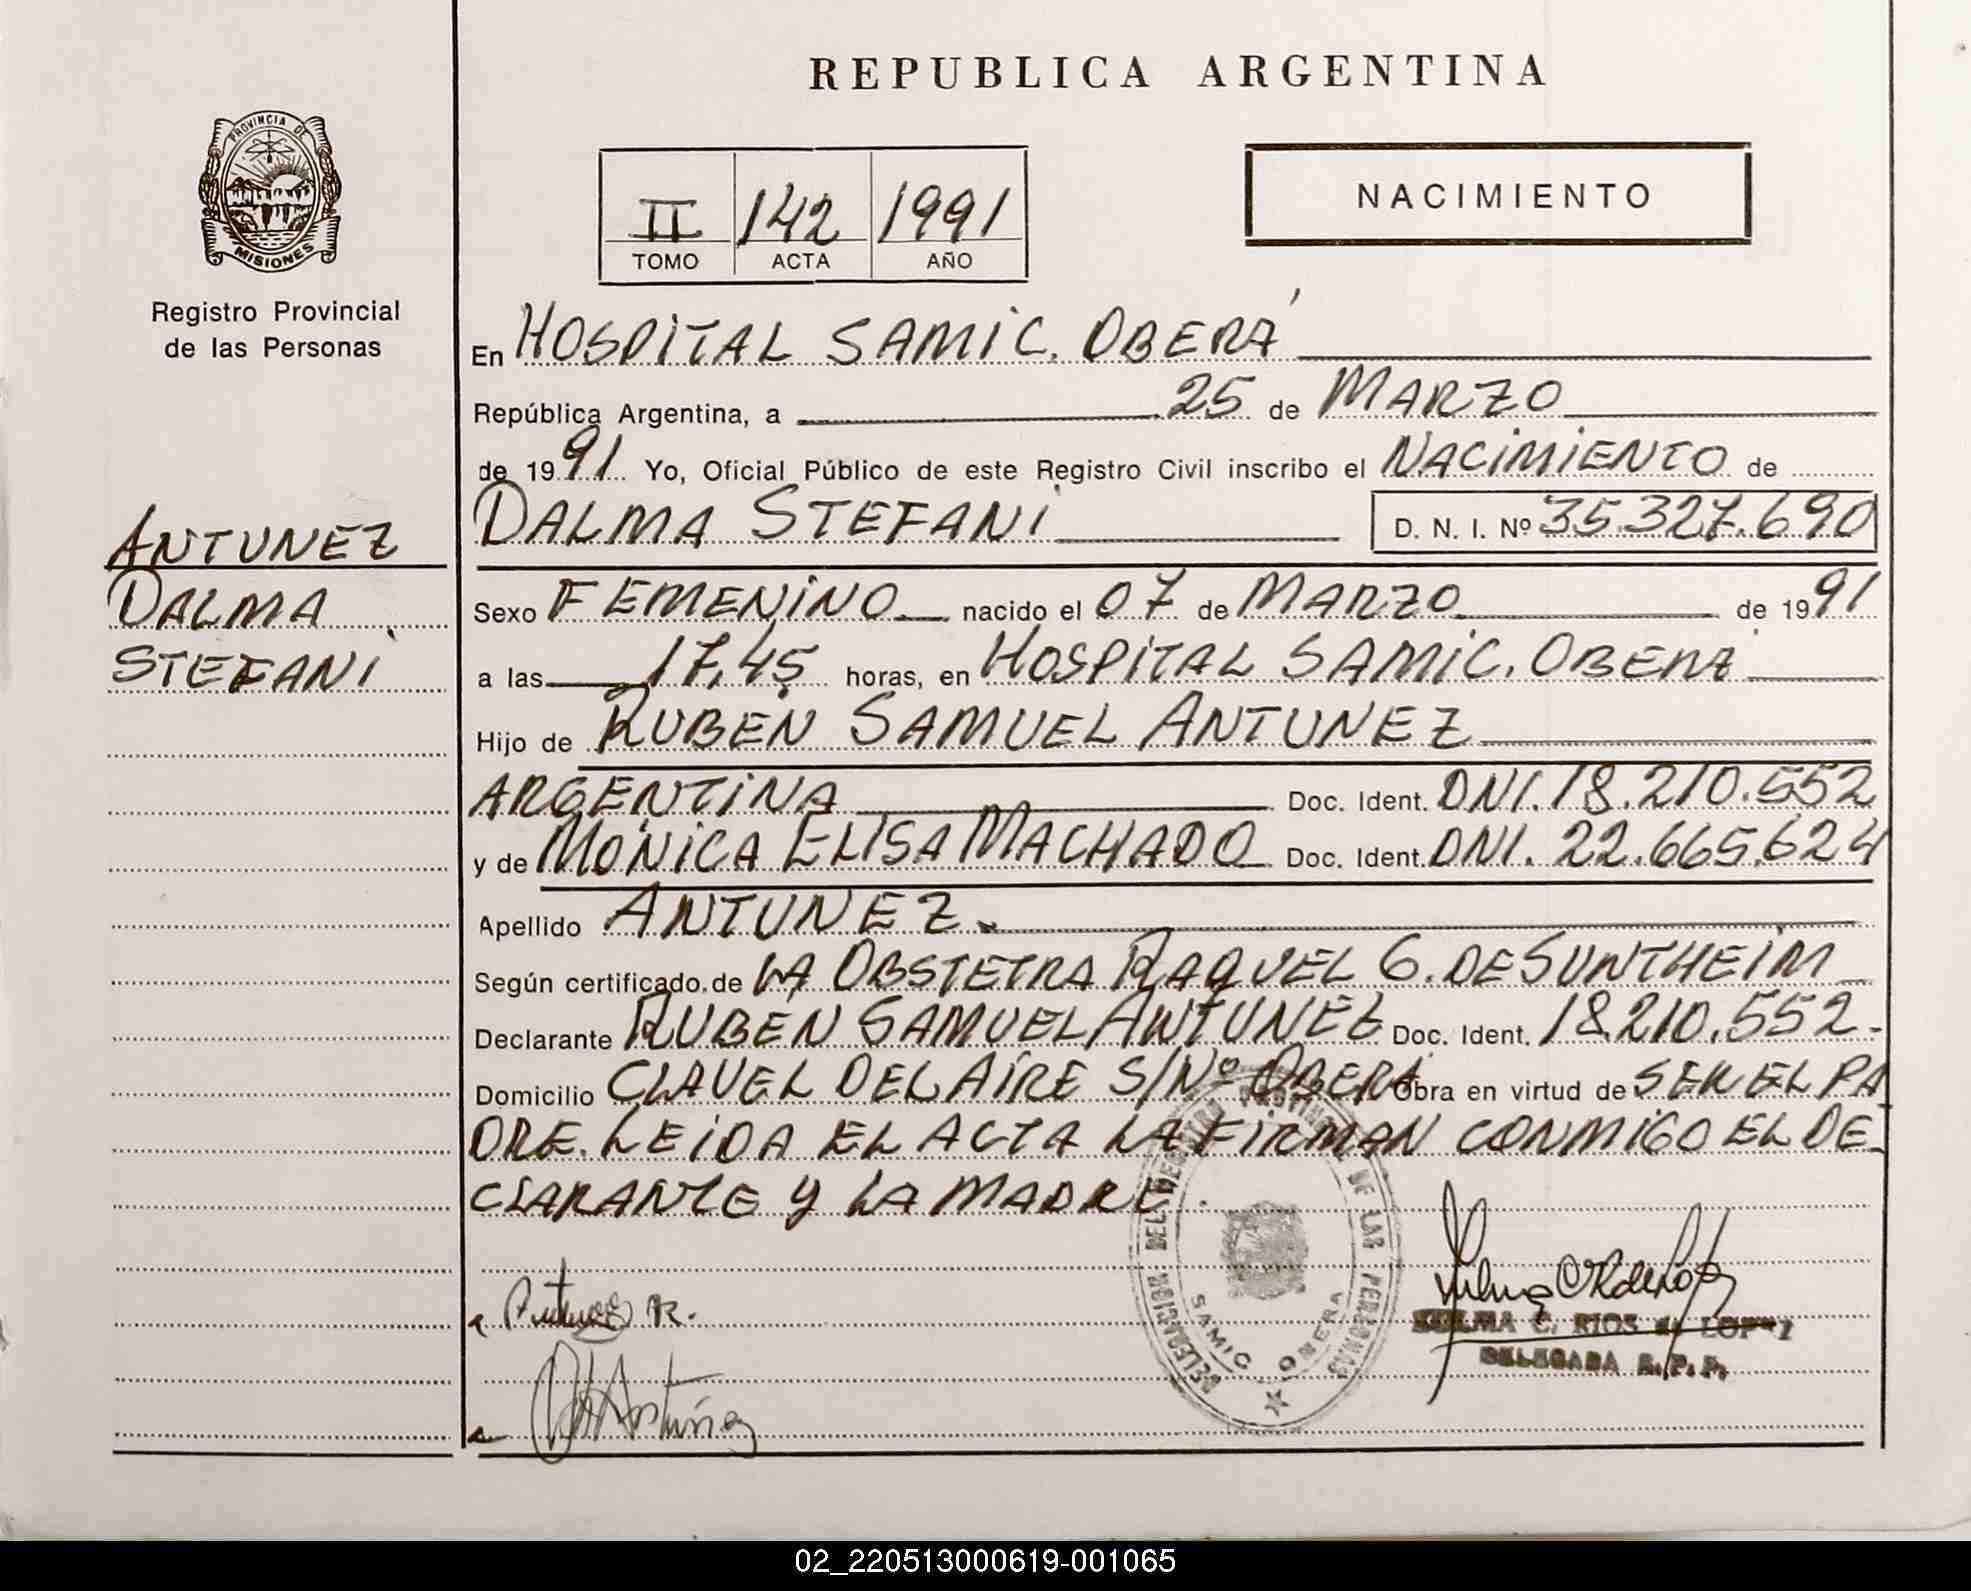 REPUBLICA ARGENTINA
PROVINCIA DE
MISIONES
Registro Provincial
de las Personas
NACIMIENTO
II 142 1991
TOMO ACTA AÑO
ANTUNEZ
DALMA
STEFANI
En HOSPITAL SAMIC. OBERÁ
República Argentina, a 25 de MARZO
de 1991 Yo, Oficial Público de este Registro Civil inscribo el NACIMIENTO de
DALMA STEFANI D. N. I. Nº 35.327.690
Sexo FEMENINO nacido el 07 de MARZO de 1991
a las 17,45 horas, en HOSPITAL SAMIC. OBERA
Hijo de RUBEN SAMUEL ANTUNEZ
ARGENTINA Doc. Ident. DNI. 18.210.552
y de MONICA ELISA MACHADO Doc. Ident. DNI. 22.665.624
Apellido ANTUNEZ.
Según certificado de LA OBSTETRA RAQUEL G. DE SUNTHEIM
Declarante RUBEN SAMUEL ANTUNEZ Doc. Ident. 18.210.552.
Domicilio CLAVEL DEL AIRE S/Nº OBERA Obra en virtud de SER EL PA
DRE. LEIDA EL ACTA LA FIRMAN CONMIGO EL DE
CLARANTE Y LA MADRE.
DELEGACION DEL REGISTRO PROVINCIAL DE LAS PERSONAS
SAMIC OBERA
Antunez R.
Antúnez
ZULMA C. RIOS de LOPEZ
DELEGADA R. P. P.
02_220513000619-001065